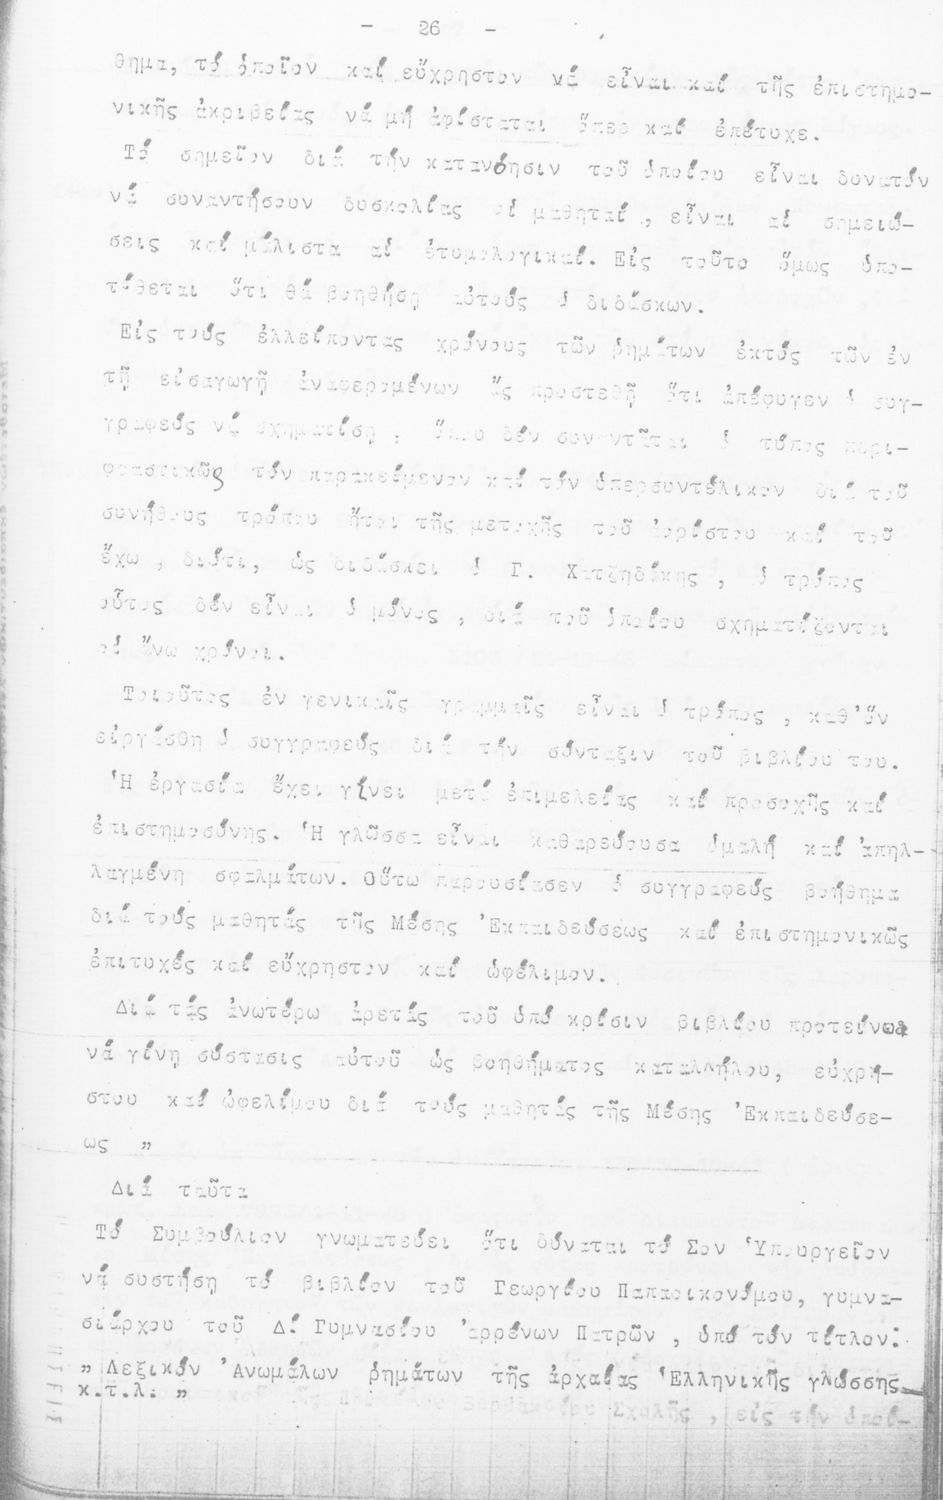 - 26 -
θημα, τό ὁποῖον καί εὔχρηστον νά εἶναι καί τῆς ἐπιστημο-
νικῆς ἀκριβείας νά μή ἀφίσταται ὅπερ καί ἐπέτυχε.
Τό σημεῖον διά τήν κατανόησιν τοῦ ὁποίου εἶναι δυνατόν
νά συναντήσουν δυσκολίας οἱ μαθηταί, εἶναι αἱ σημειώ-
σεις καί μάλιστα αἱ ἐτυμολογικαί. Εἰς τοῦτο ὅμως ὑπο-
τίθεται ὅτι θά βοηθήσῃ αὐτούς ὁ διδάσκων.
Εἰς τούς ἐλλείποντας χρόνους τῶν ῥημάτων ἐκτός τῶν ἐν
τῇ εἰσαγωγῇ ἀναφερομένων ἄς προστεθῇ ὅτι ἀπέφυγεν ὁ συγ-
γραφεύς νά σχηματίσῃ, ὅπου δέν συναντᾶται ὁ τύπος περι-
φραστικῶς τόν παρακείμενον καί τόν ὑπερσυντέλικον διά τοῦ
συνήθους τρόπου ἤτοι τῆς μετοχῆς τοῦ ἀορίστου καί τοῦ
ἔχω, διότι, ὡς διδάσκει ὁ Γ. Χατζηδάκης, ὁ τρόπος
οὗτος δέν εἶναι ὁ μόνος, διά τοῦ ὁποίου σχηματίζονται
οἱ ἄνω χρόνοι.
Τοιοῦτος ἐν γενικαῖς γραμμαῖς εἶναι ὁ τρόπος, καθ'ὅν
εἰργάσθη ὁ συγγραφεύς διά τήν σύνταξιν τοῦ βιβλίου του.
Ἡ ἐργασία ἔχει γίνει μετά ἐπιμελείας καί προσοχῆς καί
ἐπιστημοσύνης. Ἡ γλῶσσα εἶναι καθαρεύουσα ὁμαλή καί ἀπηλ-
λαγμένη σφαλμάτων. Οὕτω παρουσίασεν ὁ συγγραφεύς βοήθημα
διά τούς μαθητάς τῆς Μέσης Ἐκπαιδεύσεως καί ἐπιστημονικῶς
ἐπιτυχές καί εὔχρηστον καί ὠφέλιμον.
Διά τάς ἀνωτέρω ἀρετάς τοῦ ὑπό κρίσιν βιβλίου προτείνω
νά γίνῃ σύστασις αὐτοῦ ὡς βοηθήματος καταλλήλου, εὐχρή-
στου καί ὠφελίμου διά τούς μαθητάς τῆς Μέσης Ἐκπαιδεύσε-
ως "
Διά ταῦτα
Τό Συμβούλιον γνωματεύει ὅτι δύναται τό Σον Ὑπουργεῖον
νά συστήσῃ τό βιβλίον τοῦ Γεωργίου Παπαοικονόμου, γυμνα-
σιάρχου τοῦ Δ! Γυμνασίου Ἀρρένων Πατρῶν, ὑπό τόν τίτλον:
" Λεξικόν Ἀνωμάλων ῥημάτων τῆς ἀρχαίας Ἑλληνικῆς γλώσσης
κ.τ.λ. "